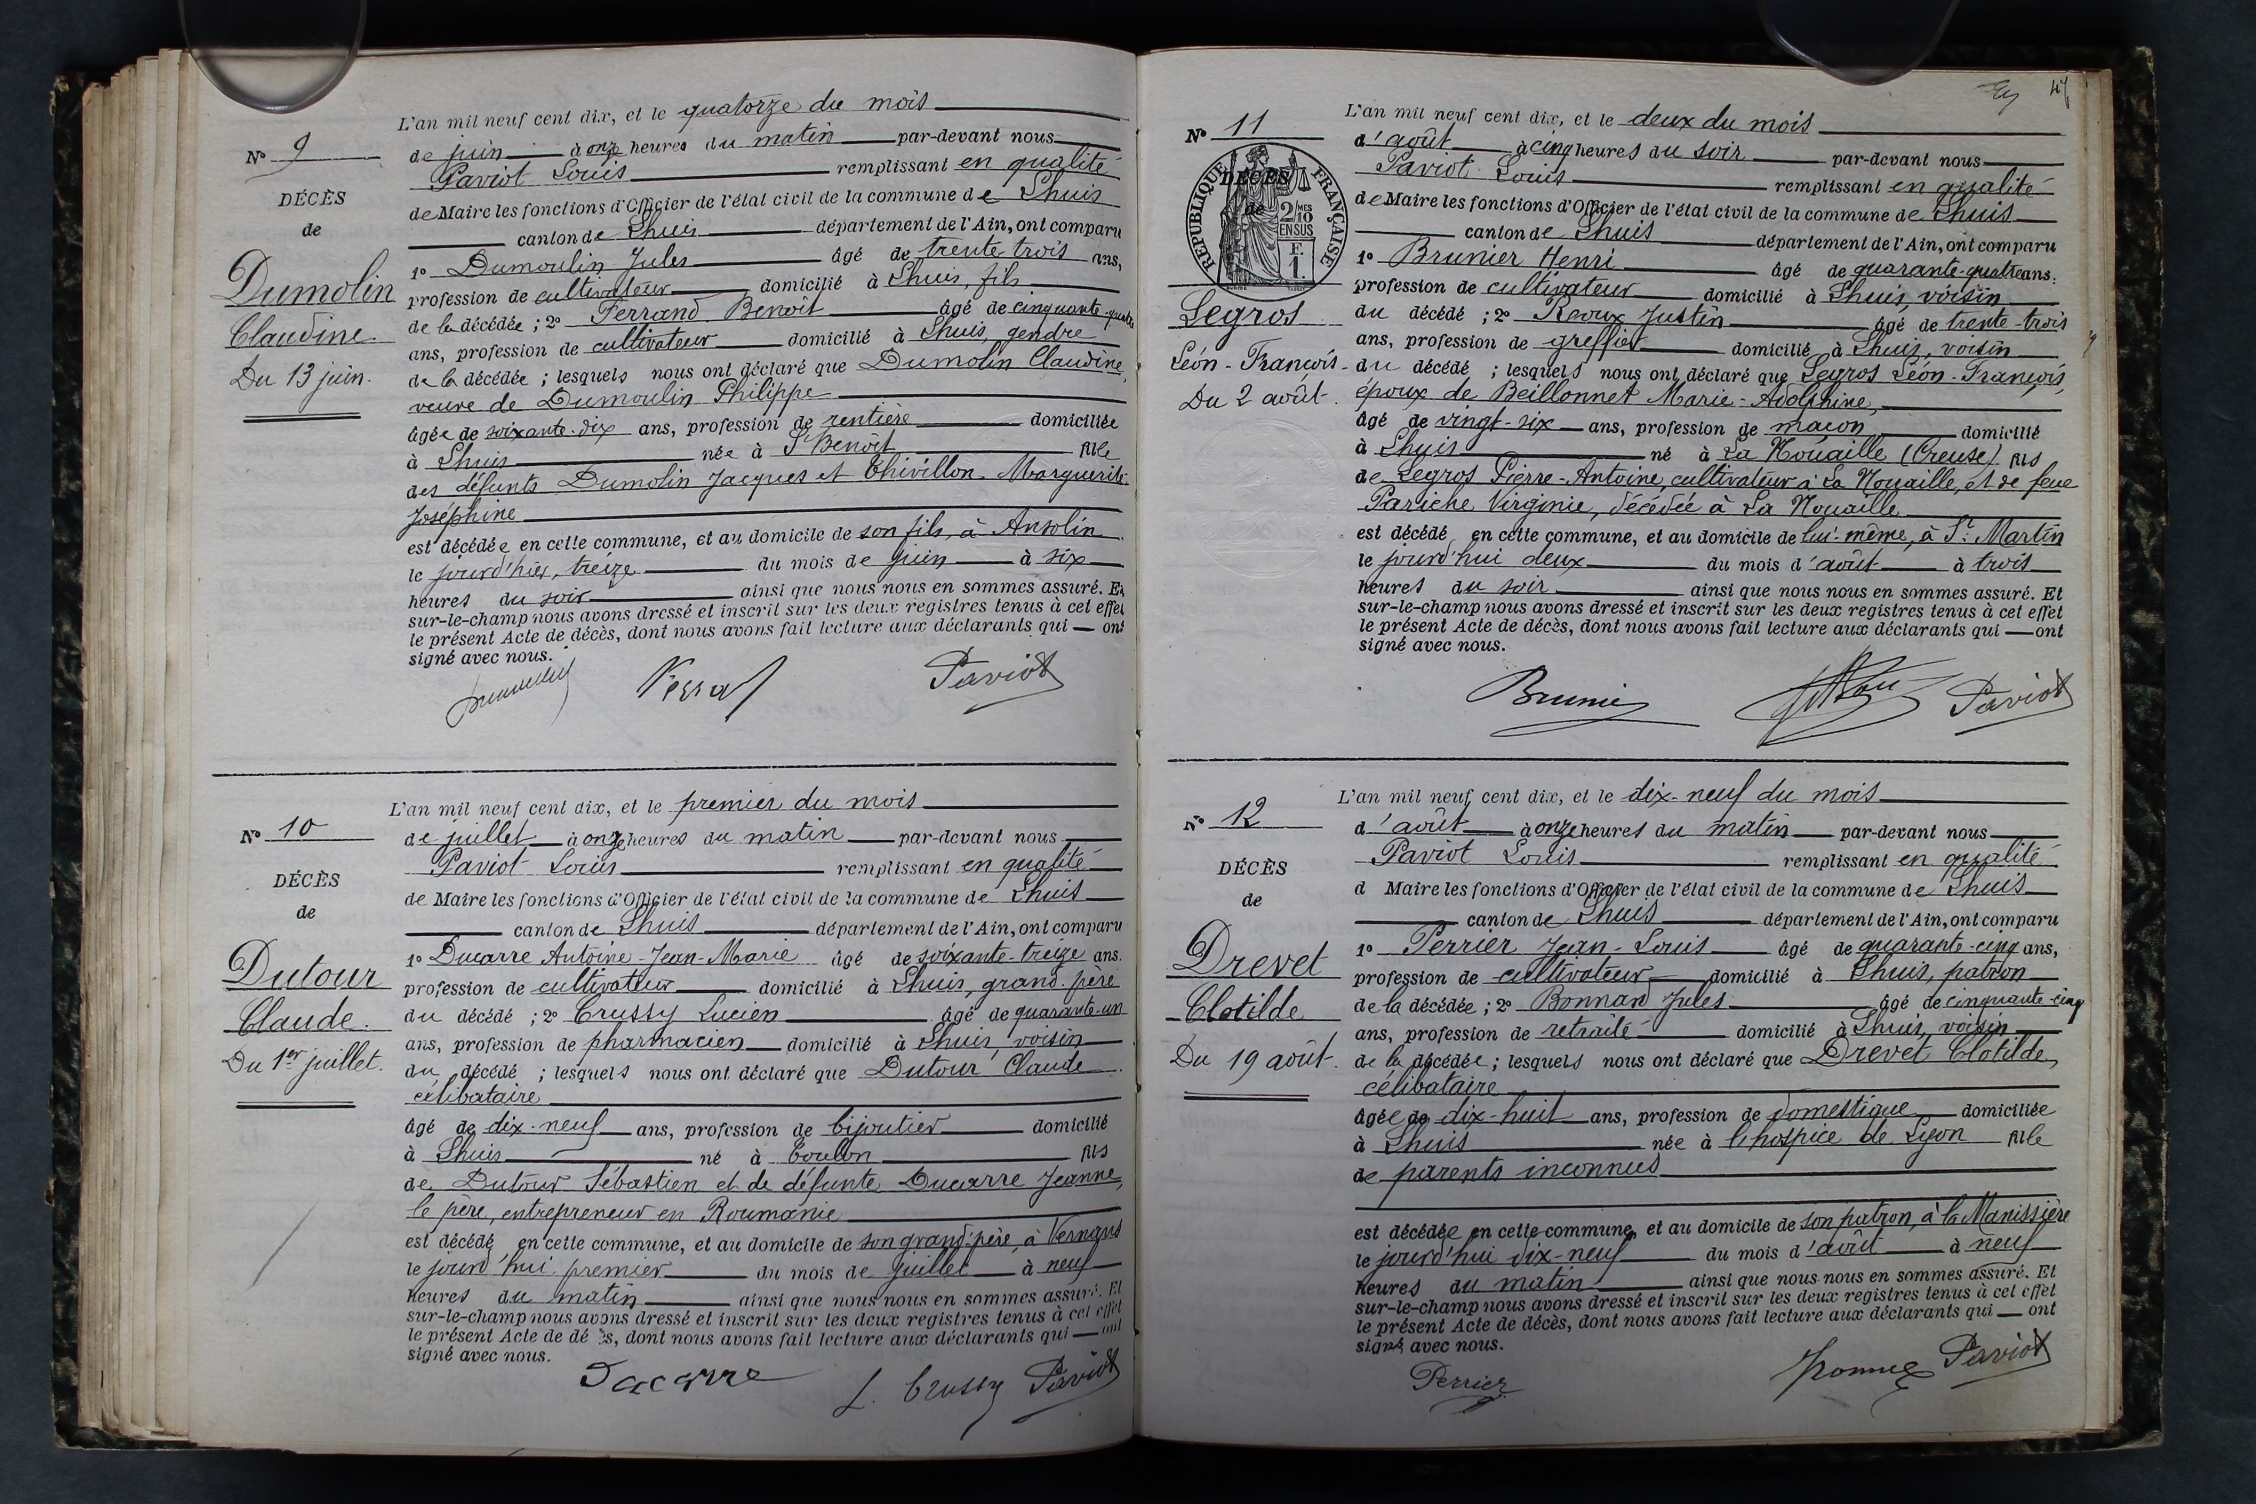 L'an mil neuf cent dix, et le quatorze du mois
N° 9
de juin à onze heures du matin par-devant nous
Paviot Louis remplissant en qualité
DÉCÈS
de Maire les fonctions d'Officier de l'état civil de la commune de Lhuis
de
canton de Lhuis département de l'Ain, ont comparu
1° Dumoulin Jules âgé de trente trois ans,
Dumolin
profession de cultivateur domicilié à Lhuis, fils
Claudine.
de la décédée ; 2° Ferrand Benoît âgé de cinquante-quatre
ans, profession de cultivateur domicilié à Lhuis, gendre
Du 13 juin.
de la décédée ; lesquels nous ont déclaré que Dumolin Claudine,
veuve de Dumoulin Philippe
âgée de soixante-dix ans, profession de rentière domiciliée
à Lhuis née à St Benoît fille
des défunts Dumolin Jacques et Thivillon Marguerite
Joséphine
est décédée en cette commune, et au domicile de son fils, à Ansolin
le jourd'hier, treize du mois de juin à six
heures du soir ainsi que nous nous en sommes assuré. Et
sur-le-champ nous avons dressé et inscrit sur les deux registres tenus à cet effet
le présent Acte de décès, dont nous avons fait lecture aux déclarants qui ont
signé avec nous.
Paviot
L'an mil neuf cent dix, et le premier du mois
N° 10
de juillet à onze heures du matin par-devant nous
Paviot Louis remplissant en qualité
DÉCÈS
de Maire les fonctions d'Officier de l'état civil de la commune de Lhuis
de
canton de Lhuis département de l'Ain, ont comparu
1° Ducarre Antoine-Jean-Marie âgé de soixante-treize ans.
Dutour
profession de cultivateur domicilié à Lhuis, grand-père
Claude.
du décédé ; 2° Crussy Lucien âgé de quarante-un
ans, profession de pharmacien domicilié à Lhuis, voisin
Du 1er juillet.
du décédé ; lesquels nous ont déclaré que Dutour Claude
célibataire
âgé de dix-neuf ans, profession de bijoutier domicilié
à Lhuis né à Toulon fils
de Dutour Sébastien et de défunte Ducarre Jeanne,
le père, entrepreneur en Roumanie
est décédé en cette commune, et au domicile de son grand-père, à Vernans
le jourd'hui premier du mois de juillet à neuf
heures du matin ainsi que nous nous en sommes assuré. Et
sur-le-champ nous avons dressé et inscrit sur les deux registres tenus à cet effet
le présent Acte de décès, dont nous avons fait lecture aux déclarants qui ont
signé avec nous.
Ducarre L. Crussy Paviot
47
L'an mil neuf cent dix, et le deux du mois
N° 11
d'août à cinq heures du soir par-devant nous
Paviot Louis remplissant en qualité
RÉPUBLIQUE FRANÇAISE
DÉCÈS
de
2/10 MES
EN SUS
F.
1.
de Maire les fonctions d'Officier de l'état civil de la commune de Lhuis
canton de Lhuis département de l'Ain, ont comparu
1° Brunier Henri âgé de quarante-quatre ans,
profession de cultivateur domicilié à Lhuis, voisin
Legros
du décédé ; 2° Revoux Justin âgé de trente-trois
ans, profession de greffier domicilié à Lhuis, voisin
Léon-François
du décédé ; lesquels nous ont déclaré que Legros Léon-François,
Du 2 août.
époux de Beillonnet Marie-Adolphine,
âgé de vingt-six ans, profession de maçon domicilié
à Lhuis né à La Nouaille (Creuse) fils
de Legros Pierre-Antoine, cultivateur à La Nouaille, et de feue
Pariche Virginie, décédée à La Nouaille
est décédé en cette commune, et au domicile de lui-même, à St Martin
le jourd'hui deux du mois d'août à trois
heures du soir ainsi que nous nous en sommes assuré. Et
sur-le-champ nous avons dressé et inscrit sur les deux registres tenus à cet effet
le présent Acte de décès, dont nous avons fait lecture aux déclarants qui ont
signé avec nous.
Brunier Paviot
L'an mil neuf cent dix, et le dix-neuf du mois
N° 12
d'août à onze heures du matin par-devant nous
Paviot Louis remplissant en qualité
DÉCÈS
d Maire les fonctions d'Officier de l'état civil de la commune de Lhuis
de
canton de Lhuis département de l'Ain, ont comparu
1° Perrier Jean-Louis âgé de quarante-cinq ans,
Drevet
profession de cultivateur domicilié à Lhuis, patron
Clotilde
de la décédée ; 2° Bonnard Jules âgé de cinquante-cinq
ans, profession de retraité domicilié à Lhuis, voisin
Du 19 août.
de la décédée ; lesquels nous ont déclaré que Drevet Clotilde,
célibataire
âgée de dix-huit ans, profession de domestique domiciliée
à Lhuis née à l'hospice de Lyon fille
de parents inconnus
est décédée en cette commune, et au domicile de son patron, à la Manissière
le jourd'hui dix-neuf du mois d'août à neuf
heures du matin ainsi que nous nous en sommes assuré. Et
sur-le-champ nous avons dressé et inscrit sur les deux registres tenus à cet effet
le présent Acte de décès, dont nous avons fait lecture aux déclarants qui ont
signé avec nous.
Perrier Paviot